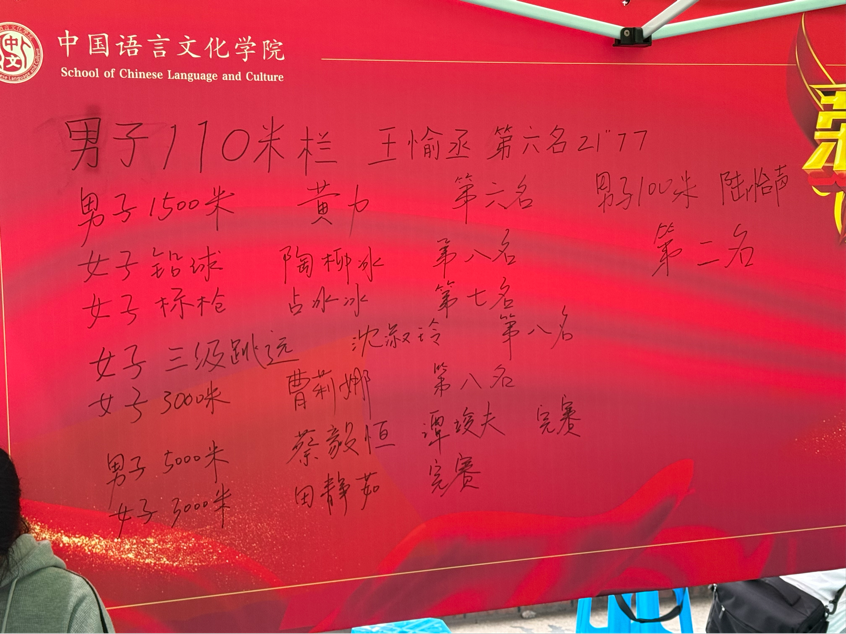 中国语言文化学院
School of Chinese Language and Culture
中文
男子110米栏 王愉丞 第六名 21"77
男子1500米 黄力 第六名 男子100米 陆怡声
第二名
女子铅球 陶柳冰 第八名
女子标枪 占冰冰 第七名
女子三级跳远 沈淑玲 第八名
女子3000米 曹莉娜 第八名
男子5000米 蔡毅恒 谭俊夫 完赛
女子3000米 田静茹 完赛